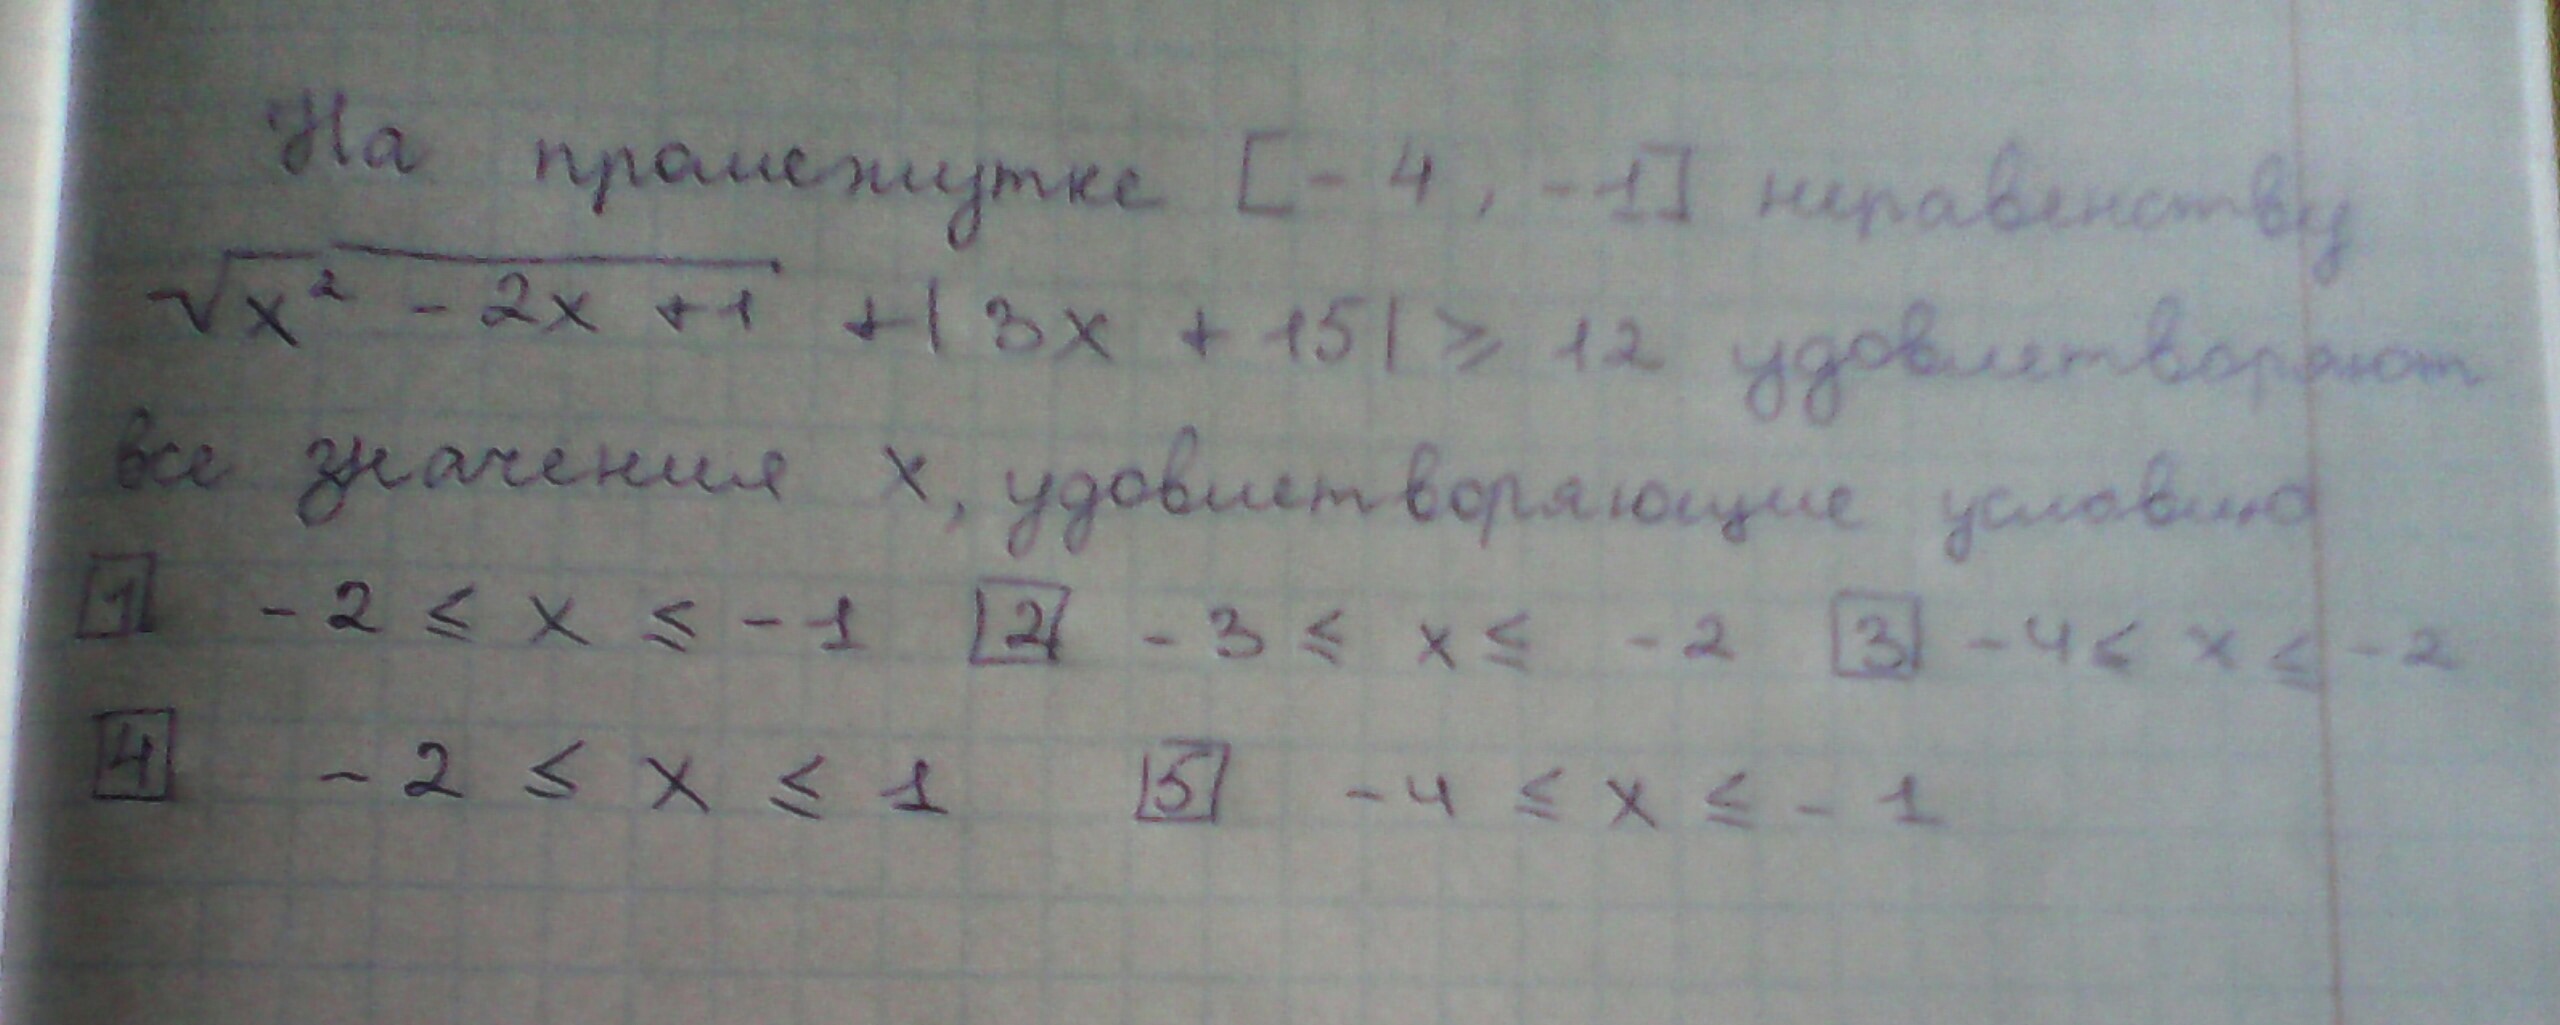 На промежутке [-4, -1] неравенству
√x² - 2x + 1 + |3x + 15| ≥ 12 удовлетворяют
все значения x, удовлетворяющие условию
1 -2 ≤ x ≤ -1 2 -3 ≤ x ≤ -2 3 -4 ≤ x ≤ -2
4 -2 ≤ x ≤ 1 5 -4 ≤ x ≤ -1